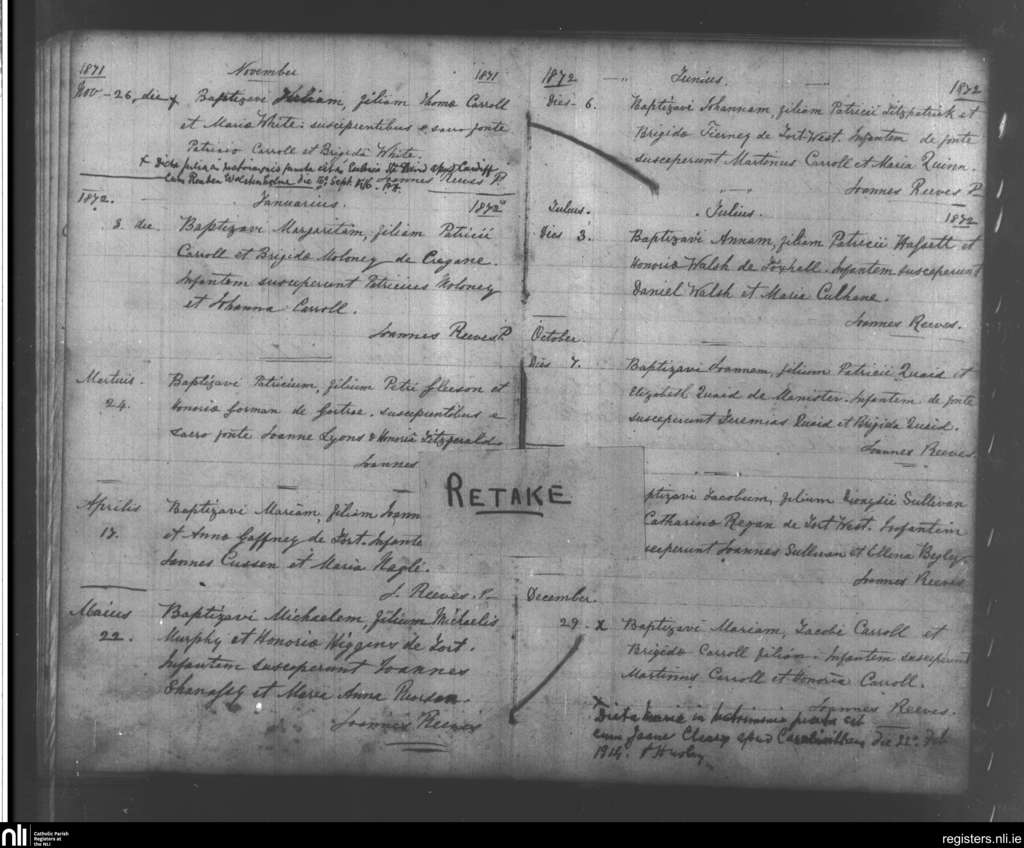 1871 November 1871
Nov - 26, die + Baptizavi Juliam, filiam Thomæ Carroll
et Mariæ White. suscipientibus e sacro fonte
Patricio Carroll et Brigida White.
+ Dicta Julia in matrimonio juncta est in Ecclesia Sti apud Cardiff
cum Reuben die Sept Joannes Reeves P.
1872. Januarius. 1872
3 die Baptizavi Margaritam, filiam Patricii
Carroll et Brigidæ Moloney de Cregane.
Infantem susceperunt Patricius Moloney
et Johanna Carroll.
Joannes Reeves P.
Martius. Baptizavi Patricium, filium Petri Gleeson et
24. Honoriæ Gorman de Gortroe. suscipientibus e
sacro fonte Joanne Lyons & Honoria Fitzgerald.
Joannes
Aprilis Baptizavi Mariam, filiam Joann
17. et Annæ Gaffney de Fort. Infante
Joannes Cussen et Maria Nagle.
J. Reeves. P
Maius Baptizavi Michaelem, filium Michaelis
22. Murphy et Honoriæ Higgins de Fort.
Infantem susceperunt Joannes
et Maria Anna
Joannes Reeves
1872 — " Junius. 1872
Dies 6. Baptizavi Johannam, filiam Patricii Fitzpatrick et
Brigidæ Tierney de Fort West. Infantem de fonte
susceperunt Martinus Carroll et Maria Quinn.
Joannes Reeves P
Julius. Julius. 1872
Dies 3. Baptizavi Annam, filiam Patricii Hasett et
Honoriæ Walsh de Foxhall. Infantem susceperunt
Daniel Walsh et Maria Culhane.
Joannes Reeves.
October.
Dies 7. Baptizavi Joannem, filium Patricii Quaid et
Elizabeth Quaid de Manister. Infantem de fonte
susceperunt Jeremias Quaid et Brigida Quaid.
Joannes Reeves
RETAKE
ptizavi Jacobum, filium Dionysii Sullivan
Catharinæ Regan de Fort West. Infantem
sceperunt Joannes Sullivan et Ellena Begley.
Joannes Reeves
December.
29. x Baptizavi Mariam, Jacobi Carroll et
Brigidæ Carroll filiam. Infantem susceperunt
Martinus Carroll et Honoria Carroll.
Joannes Reeves.
x Dicta Maria in matrimonio juncta est
cum Cleary apud die 22 Feb
1914.
nli Catholic Parish
Registers at
the NLI
registers.nli.ie